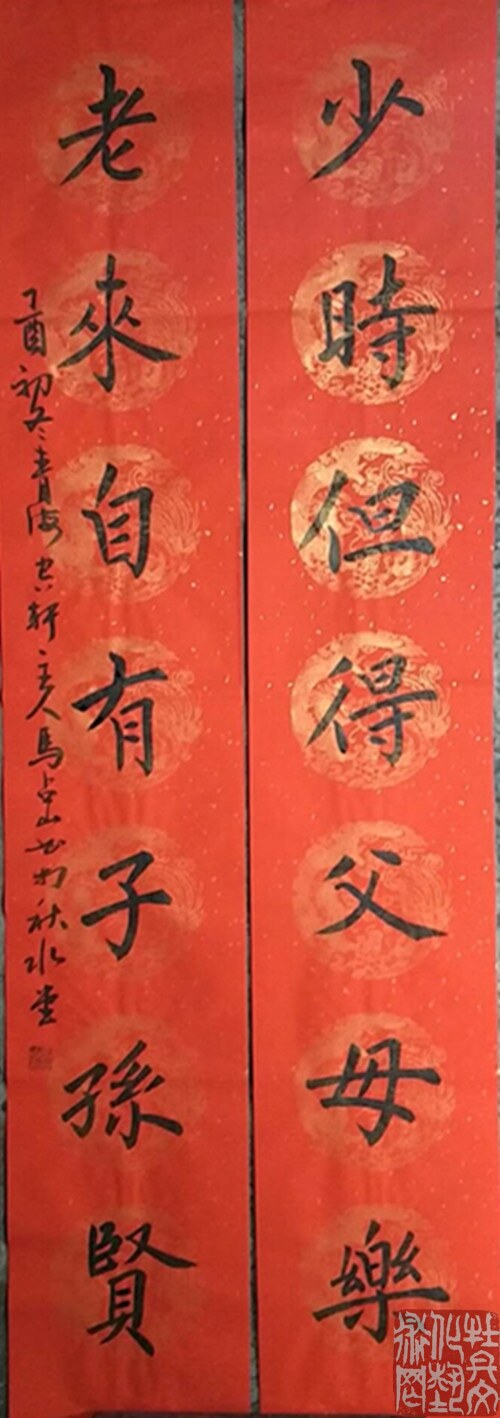 少時但得父母樂
老來自有子孫賢
丁酉初冬青海古軒主人馬占山書於秋水堂